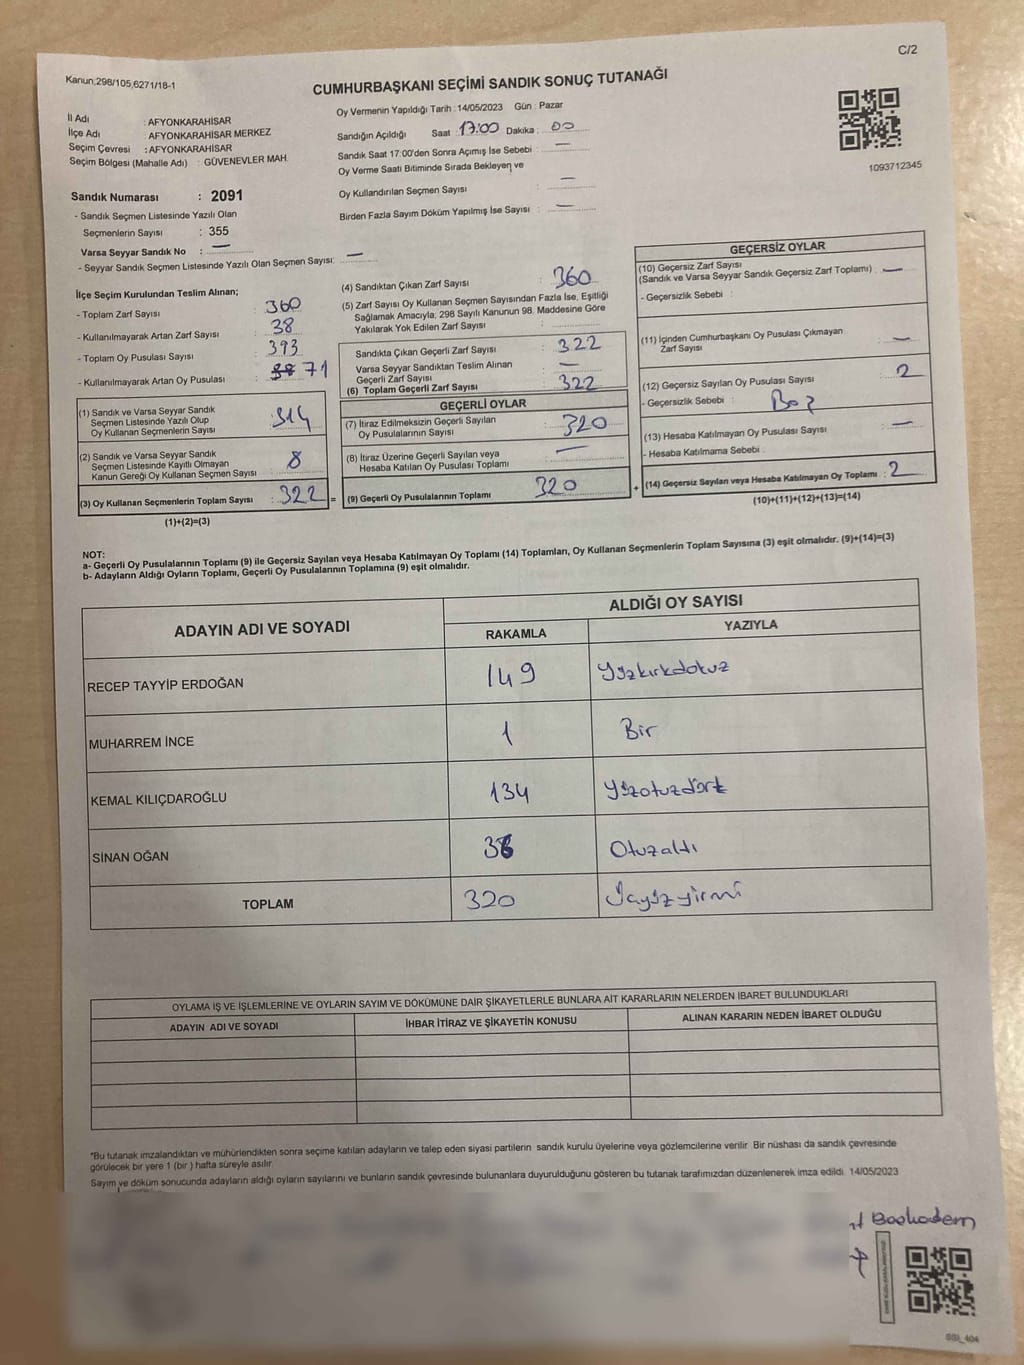 C/2
Kanun,298/105,6271/18-1
CUMHURBAŞKANI SEÇİMİ SANDIK SONUÇ TUTANAĞI
İl Adı : AFYONKARAHİSAR
İlçe Adı AFYONKARAHİSAR MERKEZ
Seçim Çevresi : AFYONKARAHİSAR
Seçim Bölgesi (Mahalle Adı) : GÜVENEVLER MAH.
Oy Vermenin Yapıldığı Tarih : 14/05/2023 Gün : Pazar
Sandığın Açıldığı Saat 17:00 Dakika : 00
Sandık Saat 17:00'den Sonra Açımış İse Sebebi : —
Oy Verme Saati Bitiminde Sırada Bekleyen ve
Oy Kullandırılan Seçmen Sayısı : —
Birden Fazla Sayım Döküm Yapılmış İse Sayısı : —
1093712345
Sandık Numarası : 2091
- Sandık Seçmen Listesinde Yazılı Olan
Seçmenlerin Sayısı : 355
Varsa Seyyar Sandık No : —
- Seyyar Sandık Seçmen Listesinde Yazılı Olan Seçmen Sayısı: —
İlçe Seçim Kurulundan Teslim Alınan;
- Toplam Zarf Sayısı : 360
- Kullanılmayarak Artan Zarf Sayısı : 38
- Toplam Oy Pusulası Sayısı : 393
- Kullanılmayarak Artan Oy Pusulası : 71
(1) Sandık ve Varsa Seyyar Sandık
Seçmen Listesinde Yazılı Olup
Oy Kullanan Seçmenlerin Sayısı : 314
(2) Sandık ve Varsa Seyyar Sandık
Seçmen Listesinde Kayıtlı Olmayan
Kanun Gereği Oy Kullanan Seçmen Sayısı : 8
(3) Oy Kullanan Seçmenlerin Toplam Sayısı : 322 =
(1)+(2)=(3)
(4) Sandıktan Çıkan Zarf Sayısı : 360
(5) Zarf Sayısı Oy Kullanan Seçmen Sayısından Fazla İse, Eşitliği
Sağlamak Amacıyla, 298 Sayılı Kanunun 98. Maddesine Göre
Yakılarak Yok Edilen Zarf Sayısı :
Sandıkta Çıkan Geçerli Zarf Sayısı : 322
Varsa Seyyar Sandıktan Teslim Alınan
Geçerli Zarf Sayısı : —
(6) Toplam Geçerli Zarf Sayısı : 322
GEÇERLİ OYLAR
(7) İtiraz Edilmeksizin Geçerli Sayılan
Oy Pusulalarının Sayısı : 320
(8) İtiraz Üzerine Geçerli Sayılan veya
Hesaba Katılan Oy Pusulası Toplamı : —
(9) Geçerli Oy Pusulalarının Toplamı : 320 +
GEÇERSİZ OYLAR
(10) Geçersiz Zarf Sayısı
(Sandık ve Varsa Seyyar Sandık Geçersiz Zarf Toplamı) : —
- Geçersizlik Sebebi :
(11) İçinden Cumhurbaşkanı Oy Pusulası Çıkmayan
Zarf Sayısı : —
(12) Geçersiz Sayılan Oy Pusulası Sayısı : 2
- Geçersizlik Sebebi : Boş
(13) Hesaba Katılmayan Oy Pusulası Sayısı : —
- Hesaba Katılmama Sebebi :
(14) Geçersiz Sayılan veya Hesaba Katılmayan Oy Toplamı : 2
(10)+(11)+(12)+(13)=(14)
NOT:
a- Geçerli Oy Pusulalarının Toplamı (9) ile Geçersiz Sayılan veya Hesaba Katılmayan Oy Toplamı (14) Toplamları, Oy Kullanan Seçmenlerin Toplam Sayısına (3) eşit olmalıdır. (9)+(14)=(3)
b- Adayların Aldığı Oyların Toplamı, Geçerli Oy Pusulalarının Toplamına (9) eşit olmalıdır.
ADAYIN ADI VE SOYADI
ALDIĞI OY SAYISI
RAKAMLA YAZIYLA
RECEP TAYYİP ERDOĞAN 149 Yüzkırkdokuz
MUHARREM İNCE 1 Bir
KEMAL KILIÇDAROĞLU 134 Yüzotuzdört
SİNAN OĞAN 36 Otuzaltı
TOPLAM 320 Üçyüzyirmi
OYLAMA İŞ VE İŞLEMLERİNE VE OYLARIN SAYIM VE DÖKÜMÜNE DAİR ŞİKAYETLERLE BUNLARA AİT KARARLARIN NELERDEN İBARET BULUNDUKLARI
ADAYIN ADI VE SOYADI İHBAR İTİRAZ VE ŞİKAYETİN KONUSU ALINAN KARARIN NEDEN İBARET OLDUĞU
*Bu tutanak imzalandıktan ve mühürlendikten sonra seçime katılan adayların ve talep eden siyasi partilerin sandık kurulu üyelerine veya gözlemcilerine verilir. Bir nüshası da sandık çevresinde
görülecek bir yere 1 (bir) hafta süreyle asılır.
Sayım ve döküm sonucunda adayların aldığı oyların sayılarını ve bunların sandık çevresinde bulunanlara duyurulduğunu gösteren bu tutanak tarafımızdan düzenlenerek imza edildi. 14/05/2023